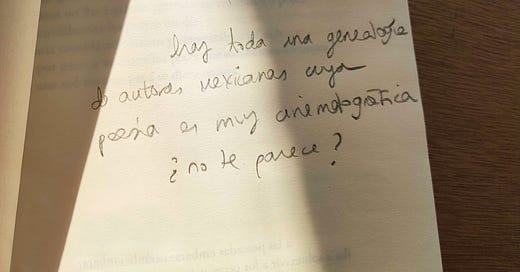 hay toda una genealogía
de autoras mexicanas cuya
poesía es muy cinematográfica
¿no te parece?